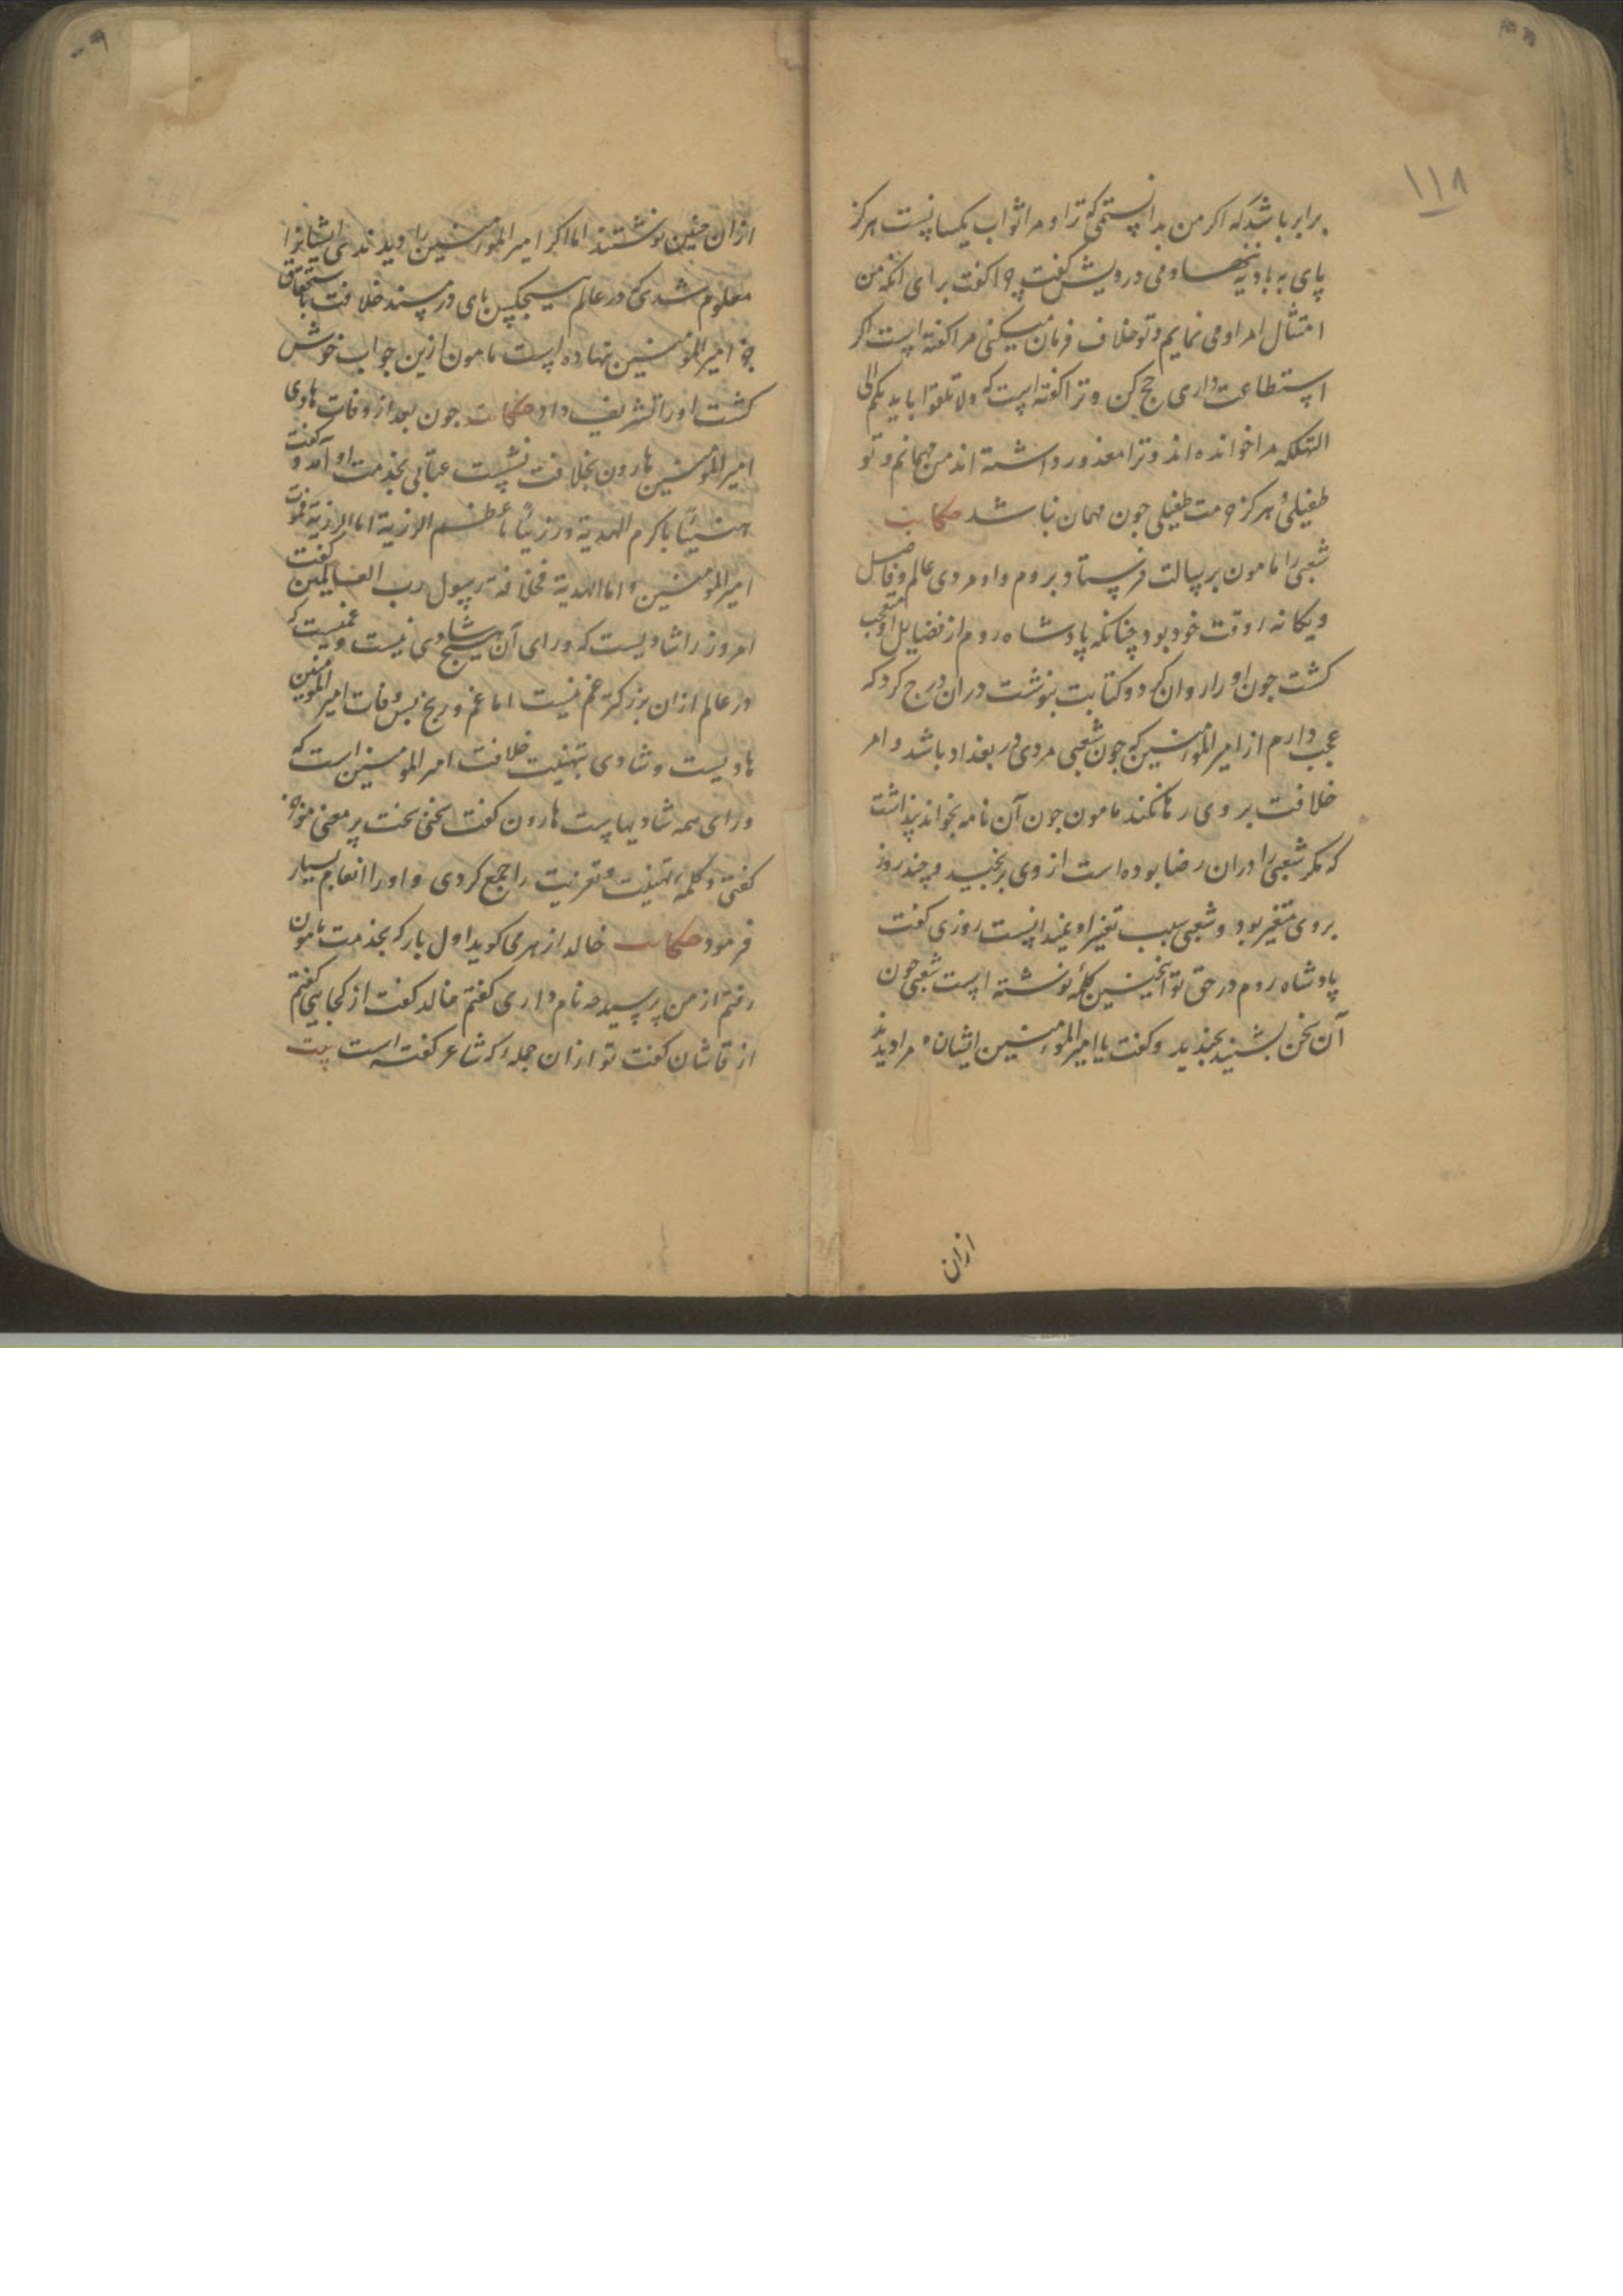 ١١٨
برابر باشد که اکر من بدانستمی که ترا و مرا ثواب یکسانست هرکز
پای به بادیه ننهادمی درویش کفت چرا کفت برای آنکه من
امتثال امر او می نمایم و تو خلاف فرمان میکنی مرا کفته است اکر
استطاعت داری حج کن و ترا کفته است که ولا تلقوا بایدیکم الی
التهلکه مرا خوانده اند و ترا معذور داشته اند من مهمانم و تو
طفیلئ هرکز حرمت طفیلی جون مهمان نباشد حکایت
شعبی را مامون برسالت فرستاد بروم و او مردی عالم و فاضل
و یکانه روقت خود بود چنانکه پادشاه روم از فضایل او متعجب
کشت جون او را روان کرد و کتابت بنوشت دران درج کرد که
عجب دارم از امیر المومنین که جون شعبی مردی در بغداد باشد و امر
خلافت بر وی رها نکند مامون جون آن نامه بخواند پنداشت
که مکر شعبی را دران رضا بوده است از وی برنجید و چند روز
بر وی متغیر بود و شعبی سبب تغیر او نمیدانست روزی کفت
پادشاه روم در حق تو اینچنین کلمه نوشته است شعبی جون
آن سخن بشنید بخندید و کفت یا امیر المومنین ایشان مرا دیدند
ازان
ازان جنین نوشتند اما اکر امیر المومنین را دیدندی ایشانرا
معلوم شدی که در عالم هیچکس پای در مسند خلافت باستحقاق
جز امیر المومنین ننهاده است مامون ازین جواب خوش
کشت او را تشریف داد حکایت جون بعد از وفات هادی
امیر المومنین هارون بخلافت نشست عتابی بخدمت او آمد و کفت
هنیئا باکرم الهدیة و رزئیا باعظم الرزیة اما الرزیة فموت
امیر المومنین و اما الهدیة فخلافة رسول رب العالمین کفت
امروز را شادیست که ورای آن هیچ شادی نیست و غمیست که
در عالم ازان بزرکتر غم نیست اما غم و رنج بس وفات امیر المومنین
هادیست و شادی تهنیت خلافت امیر المومنین است که
ورای همه شادیهاست هارون کفت سخنی سخت پر معنی موجز
کفتی و کلمه تهنیت و تعزیت را جمع کردی و او را انعام بسیار
فرمود حکایت خالد ازهر می کوید اول بار که بخدمت مامون
رفتم از من پرسید چه نام داری کفتم خالد کفت از کجایی کفتم
از قاشان کفت تو ازان جمله که شاعر کفته است بیت